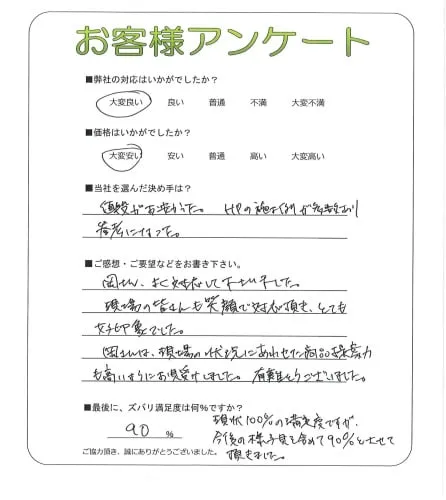 お客様アンケート
■弊社の対応はいかがでしたか？
大変良い 良い 普通 不満 大変不満
■価格はいかがでしたか？
大変安い 安い 普通 高い 大変高い
■当社を選んだ決め手は？
値段がお安かった。 HPの施工例が多数あり
参考になった。
■ご感想・ご要望などをお書き下さい。
岡さん、よく対応して下さいました。
現場の皆さんも笑顔で対応頂き、とても
好印象でした。
岡さんは、現場の状況にあわせた商品提案力
も高いようにお見受けしました。有難うございました。
■最後に、ズバリ満足度は何％ですか？
90 %
現状100%の満足度ですが、
今後の様子見を含めて90%とさせて
頂きました。
ご協力頂き、誠にありがとうございました。